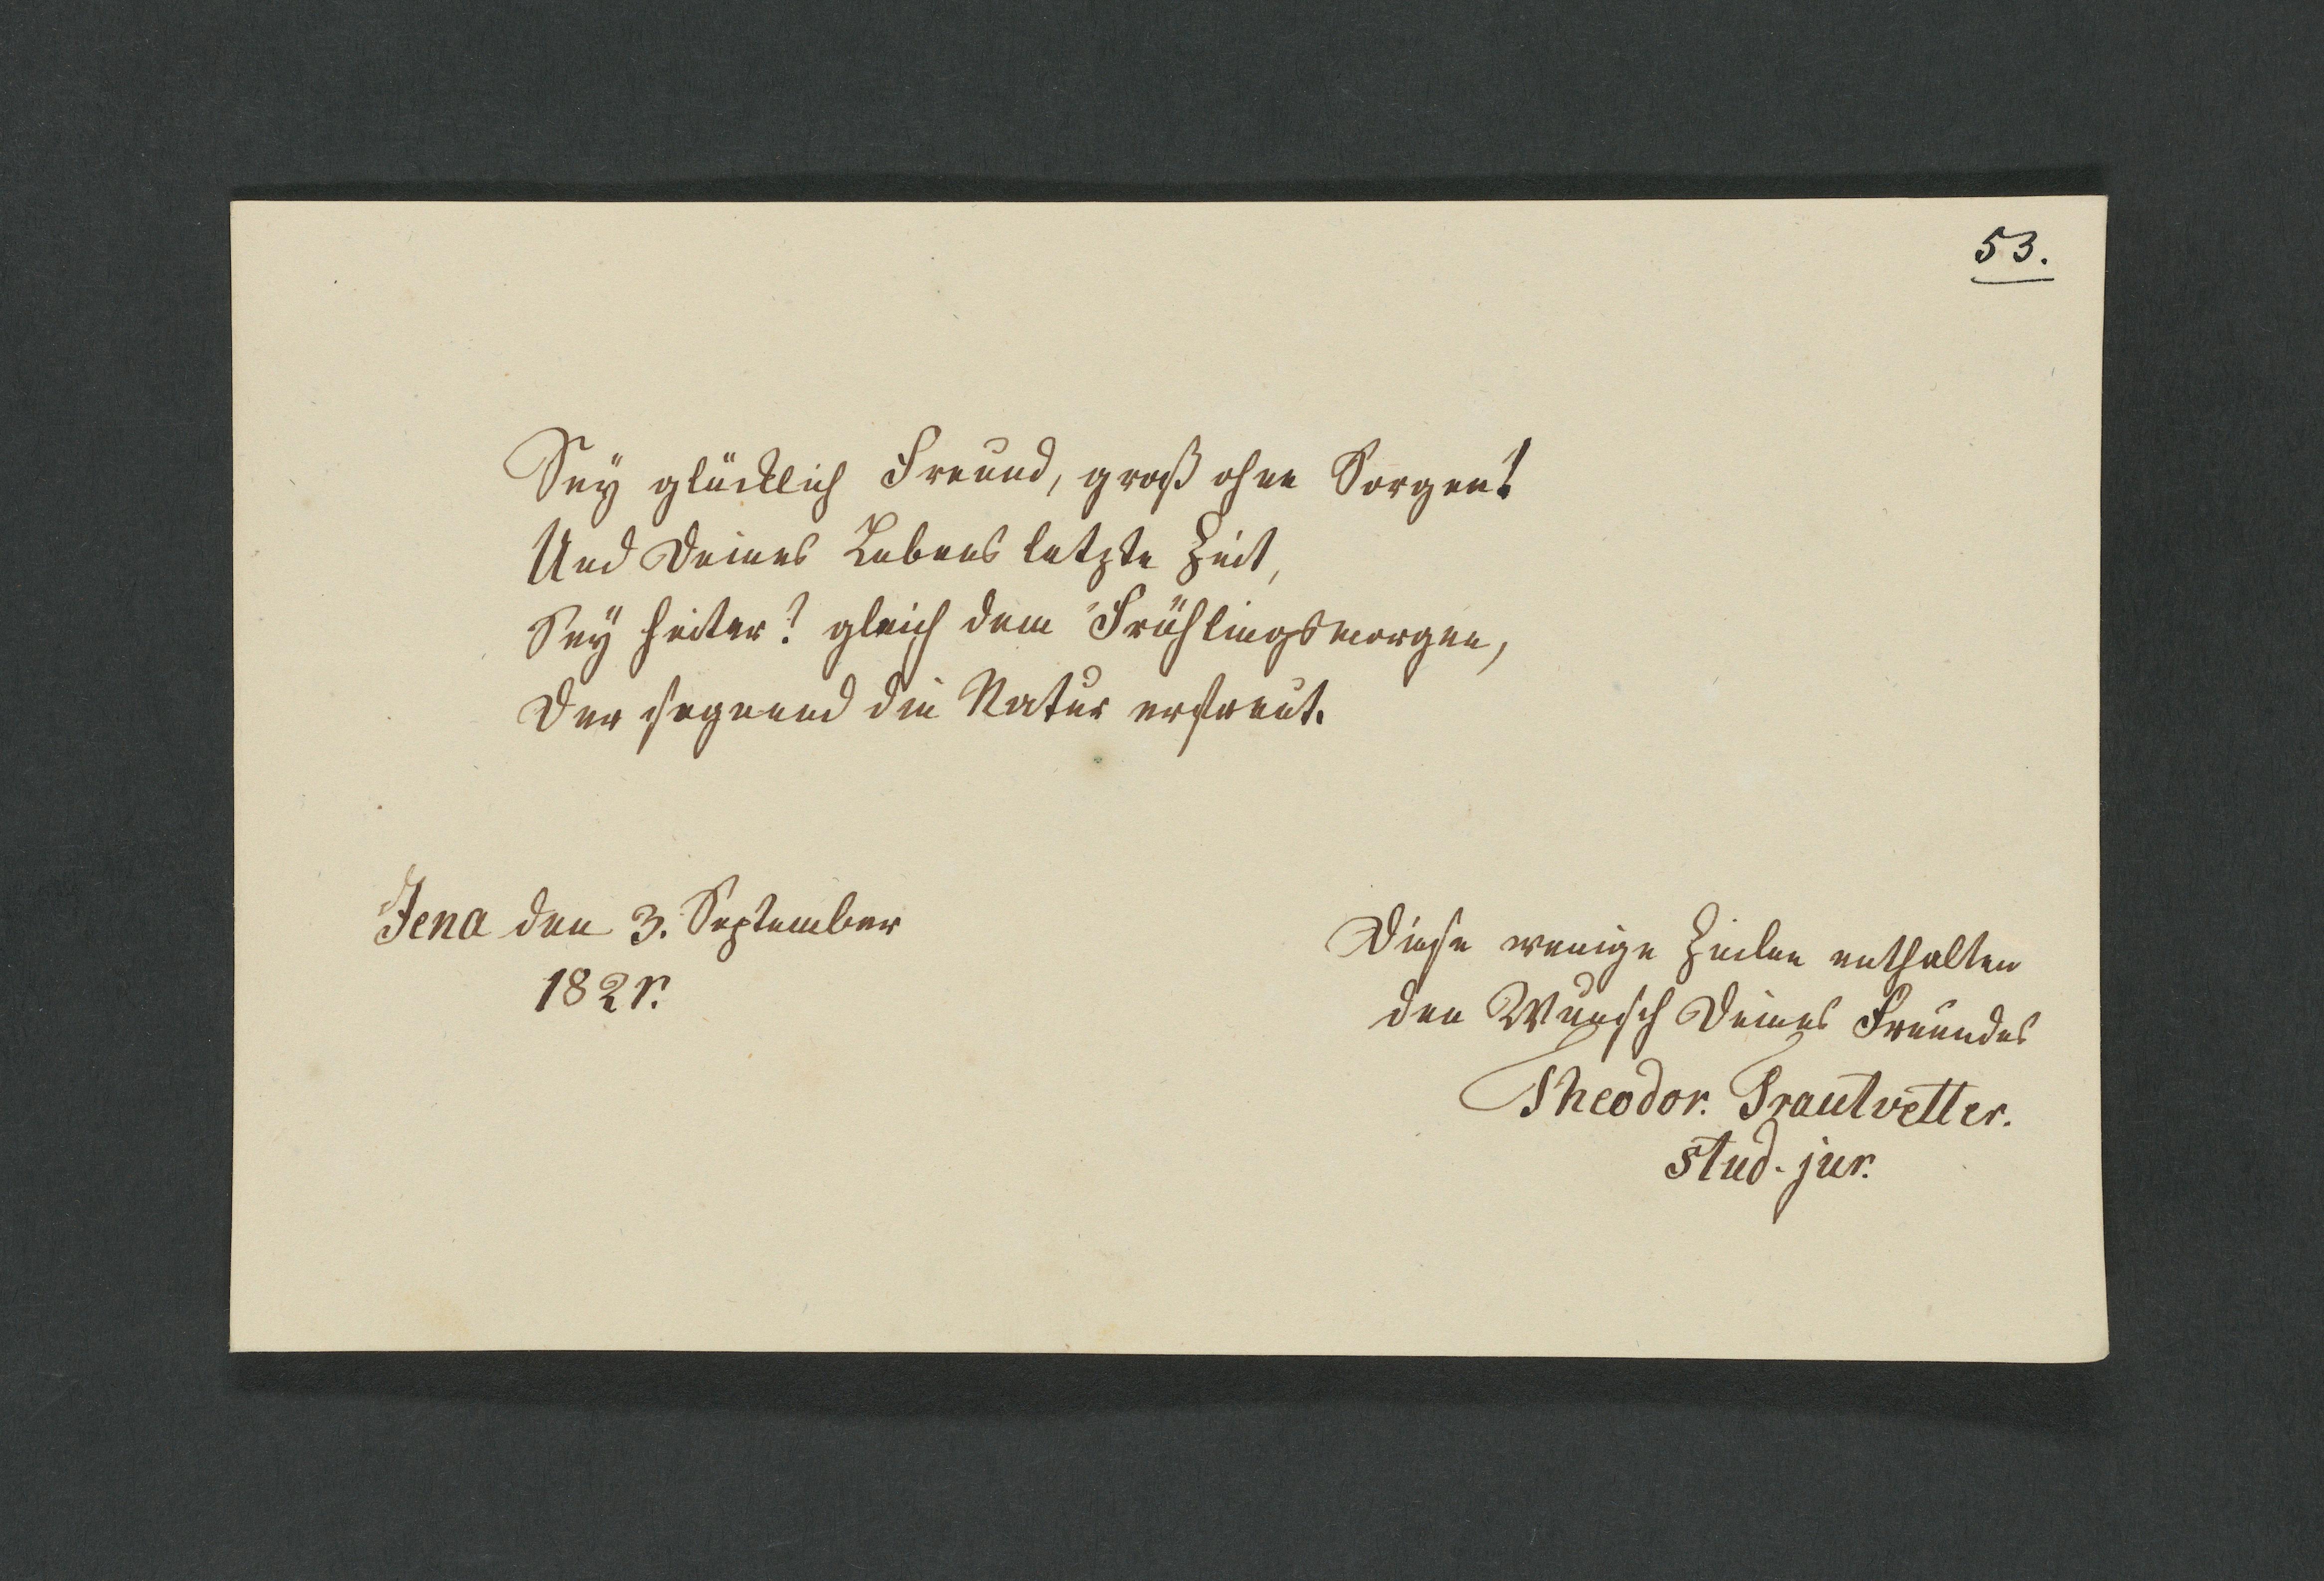 53.
Sey glücklich Freund, groß ohne Sorgen!
Und Deines Lebens letzte Zeit,
Sey heiter! gleich dem Frühlingsmorgen,
Der segnend die Natur erfreut.
Jena den 3. September
1821.
Diese wenige Zeilen enthalten
den Wunsch Deines Freundes
Theodor. Trautvetter.
stud. jur.